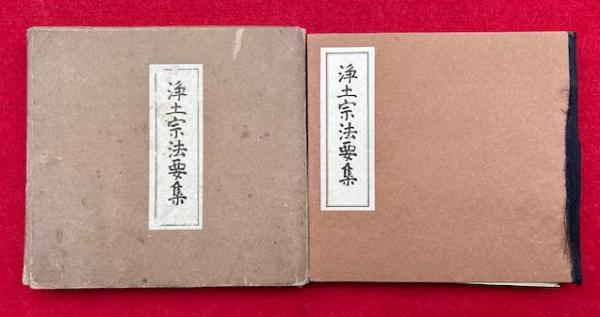 浄土宗法要集
浄土宗法要集